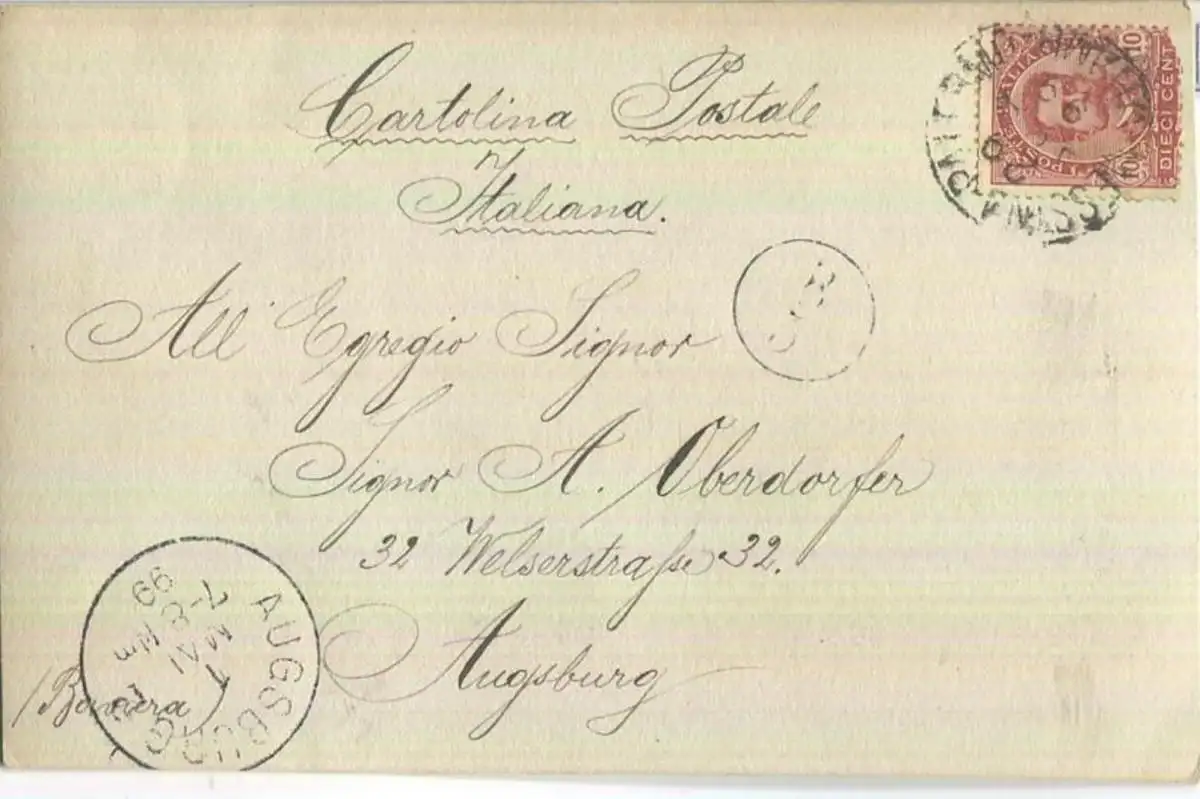 Cartolina Postale
Italiana.
All' Egregio Signor
Signor A. Oberdorfer
32 Welserstraße 32.
Augsburg
(Bavaera)
AUGSBURG
1 MAI
7-8 Nm
99
POSTE ITALIANE
DIECI CENT
10
10